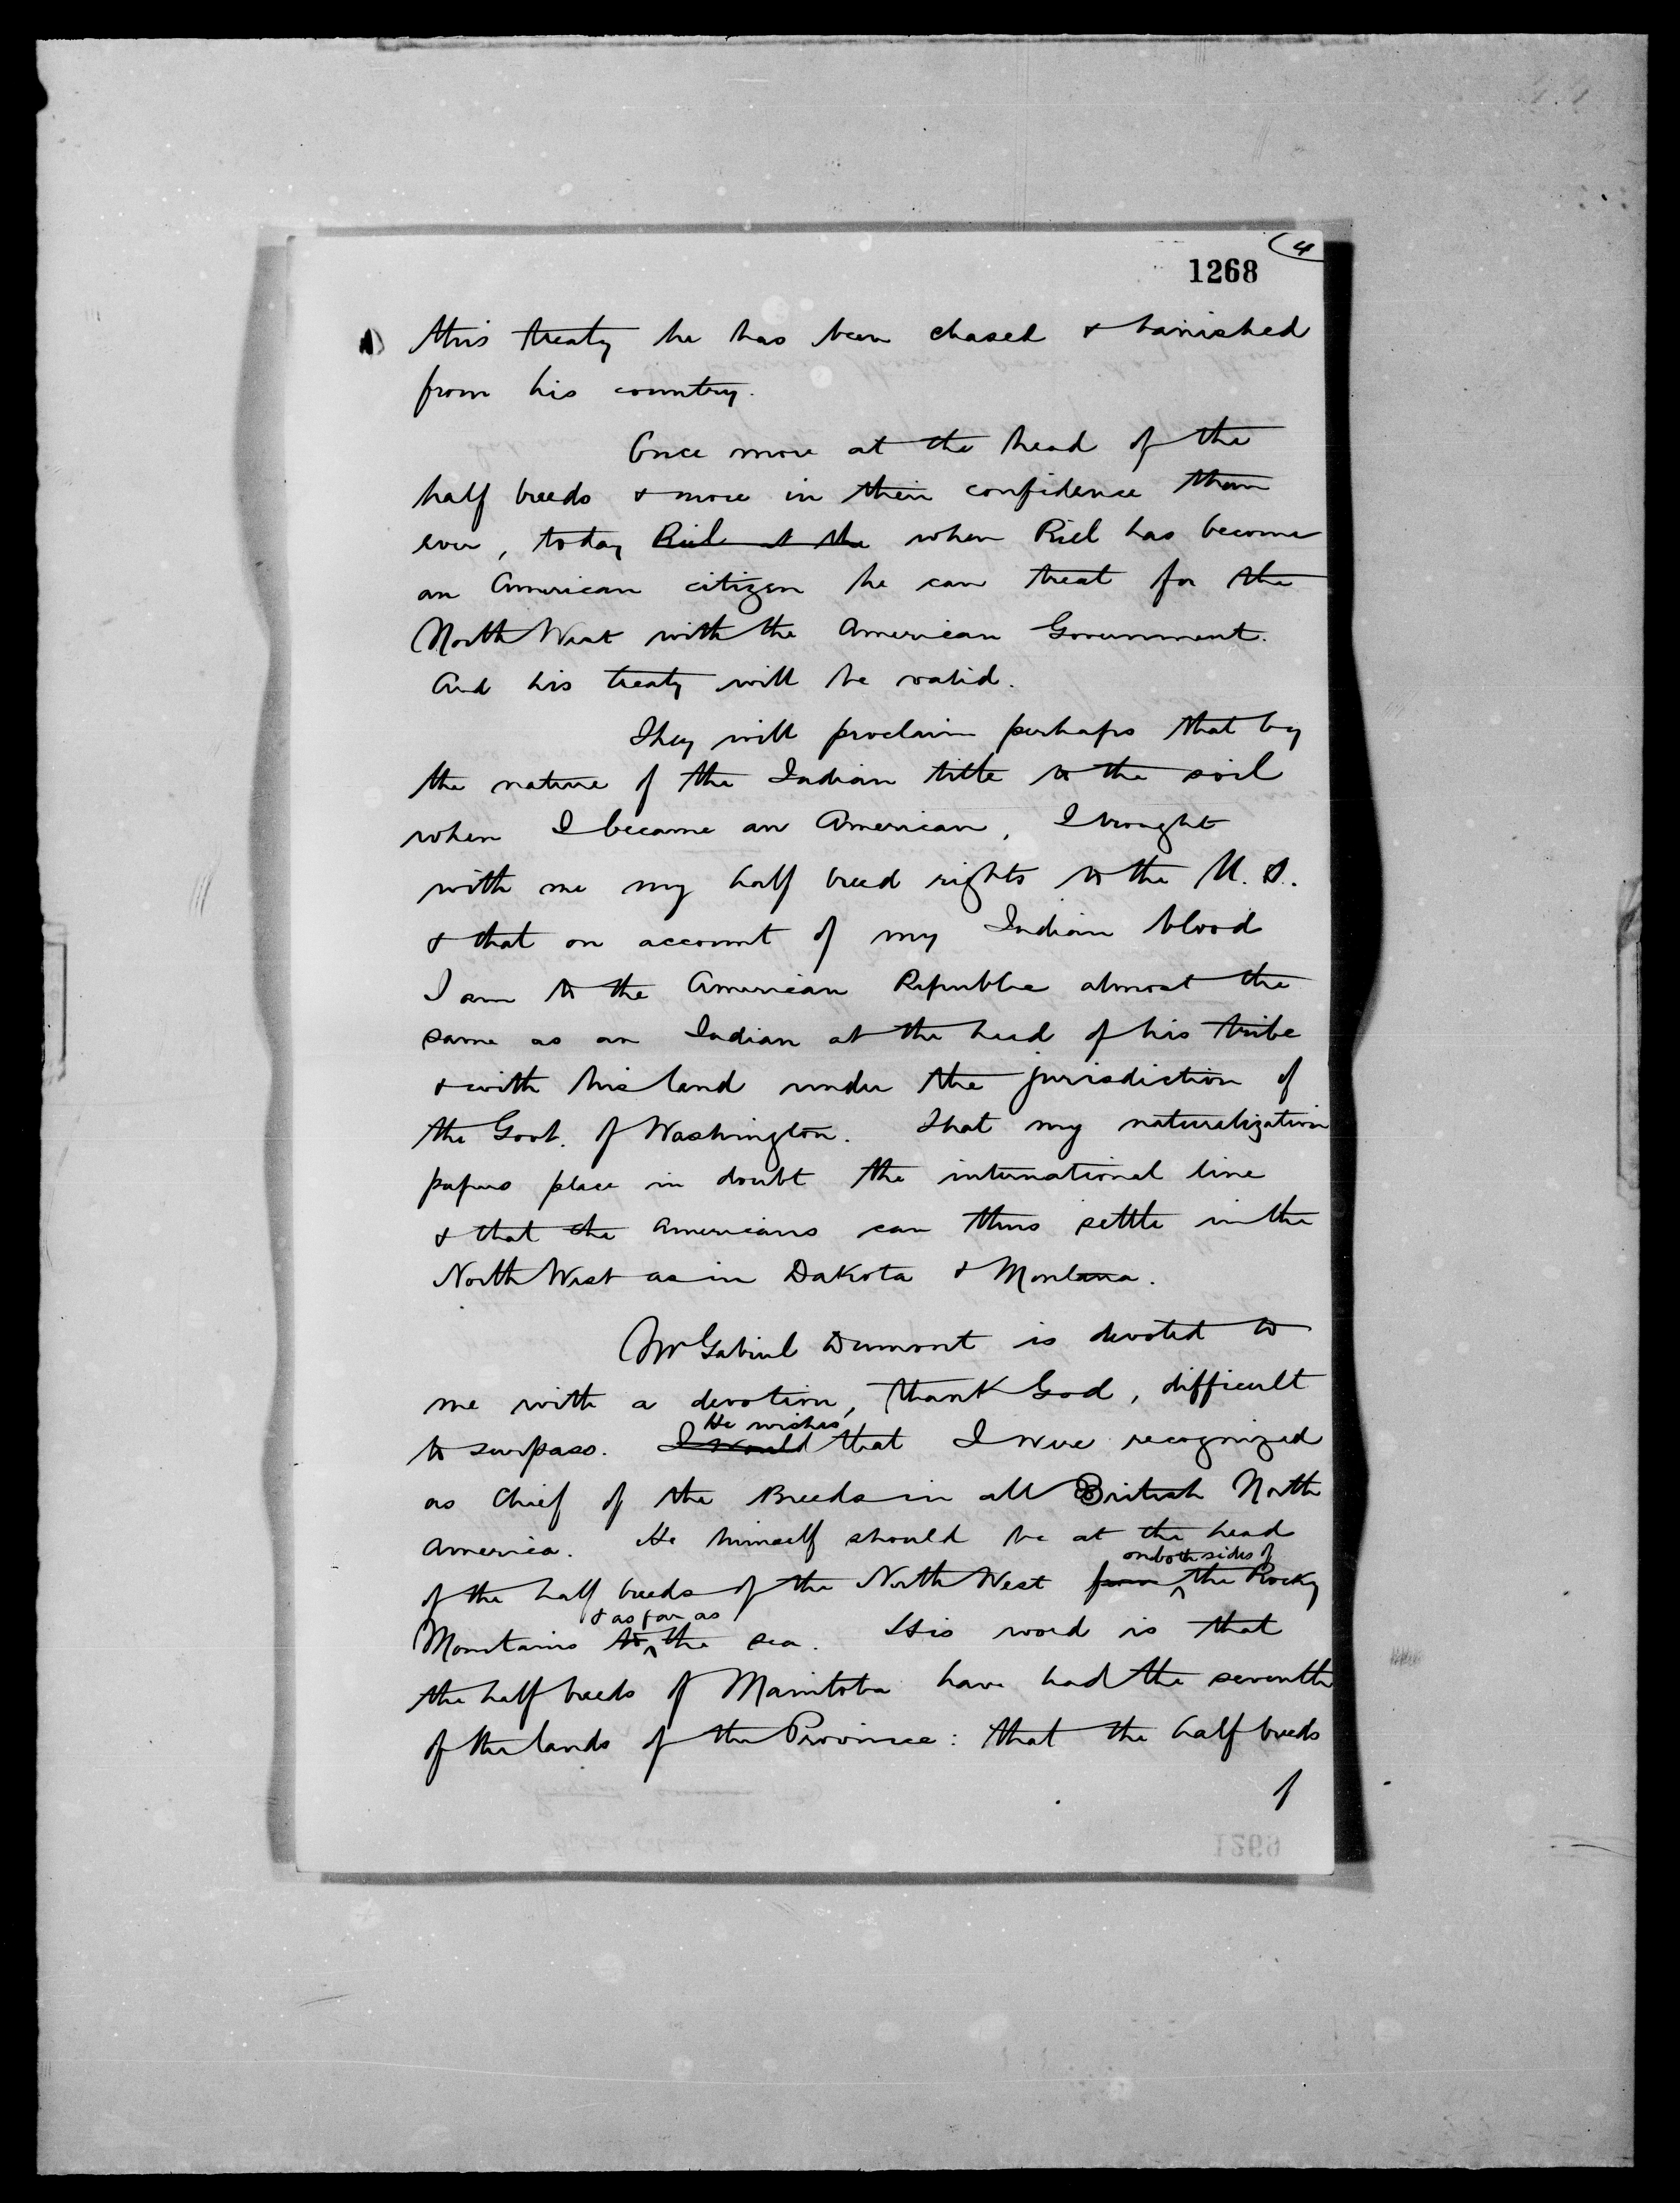 4
1268
this treaty he has been chased & banished
from his country.
Once more at the head of the
half breeds & more in their confidence than
ever, today Riel at the when Riel has become
an American citizen he can treat for the
North West with the American Government.
And his treaty will be valid.
They will proclaim perhaps that by
the nature of the Indian title to the soil
when I became an American, I brought
with me my half breed rights to the U. S.
& that on account of my Indian blood
I am to the American Republic almost the
same as an Indian at the head of his tribe
& with his land under the jurisdiction of
the Govt. of Washington. That my naturalization
papers place in doubt the international line
& that the Americans can thus settle in the
North West as in Dakota & Montana.
Mr Gabriel Dumont is devoted to
me with a devotion, thank God, difficult
He wishes
to surpass. I would that I were recognized
as Chief of the Breeds in all British North
America. He himself should be at the head
on both sides of
of the half breeds of the North West from the Rocky
& as far as
Mountains to the sea. His word is that
the half breeds of Manitoba have had the seventh
of the lands of the Province: that the half breeds
of
1269